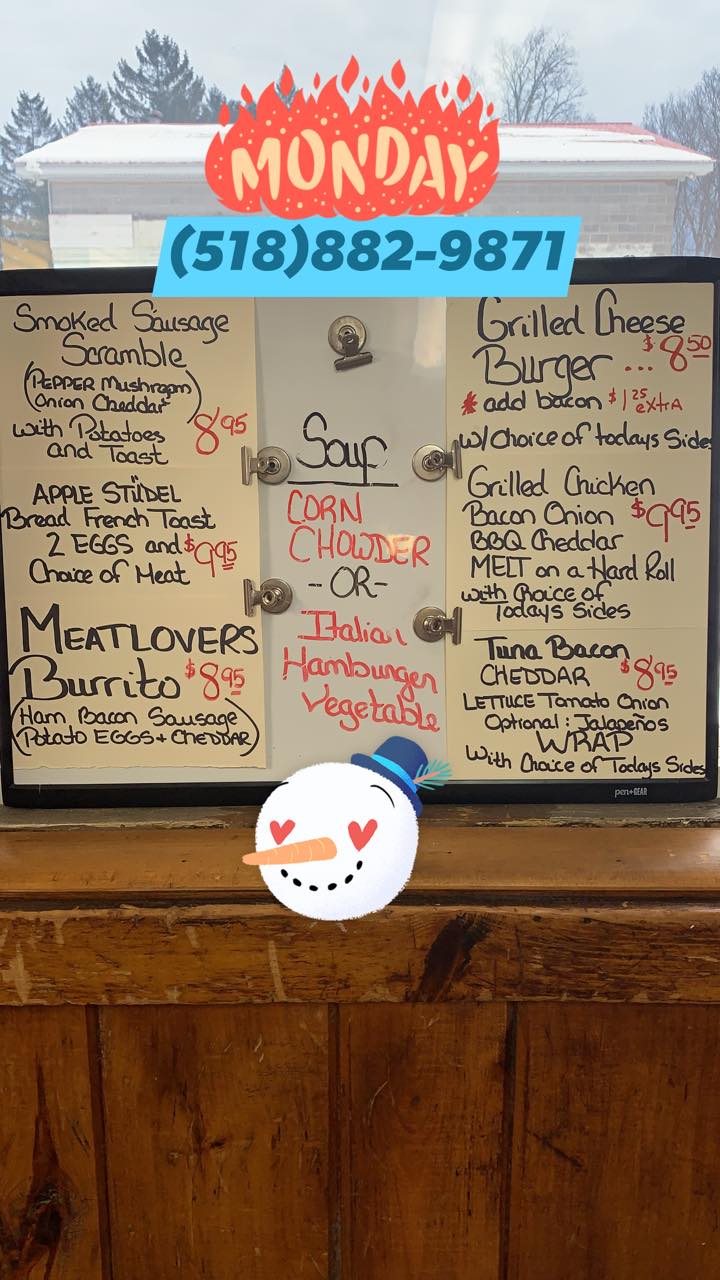 MONDAY
(518)882-9871
Smoked Sausage
Scramble
(PEPPER Mushroom
Onion Cheddar)
with Potatoes
and Toast
8.95
APPLE STÜDEL
Bread French Toast
2 EGGS and
Choice of Meat
$9.95
MEATLOVERS
Burrito $8.95
(Ham Bacon Sausage
Potato EGGS + CHEDDAR)
Soup
CORN
CHOWDER
-- OR --
Italian
Hamburger
Vegetable
Grilled Cheese
Burger ... $8.50
* add bacon $1.25 extra
w/ Choice of todays Sides
Grilled Chicken
Bacon Onion $9.95
BBQ Cheddar
MELT on a Hard Roll
with Choice of
Todays Sides
Tuna Bacon
CHEDDAR $8.95
LETTUCE Tomato Onion
Optional: Jalapeños
WRAP
With Choice of Todays Sides
pen+GEAR